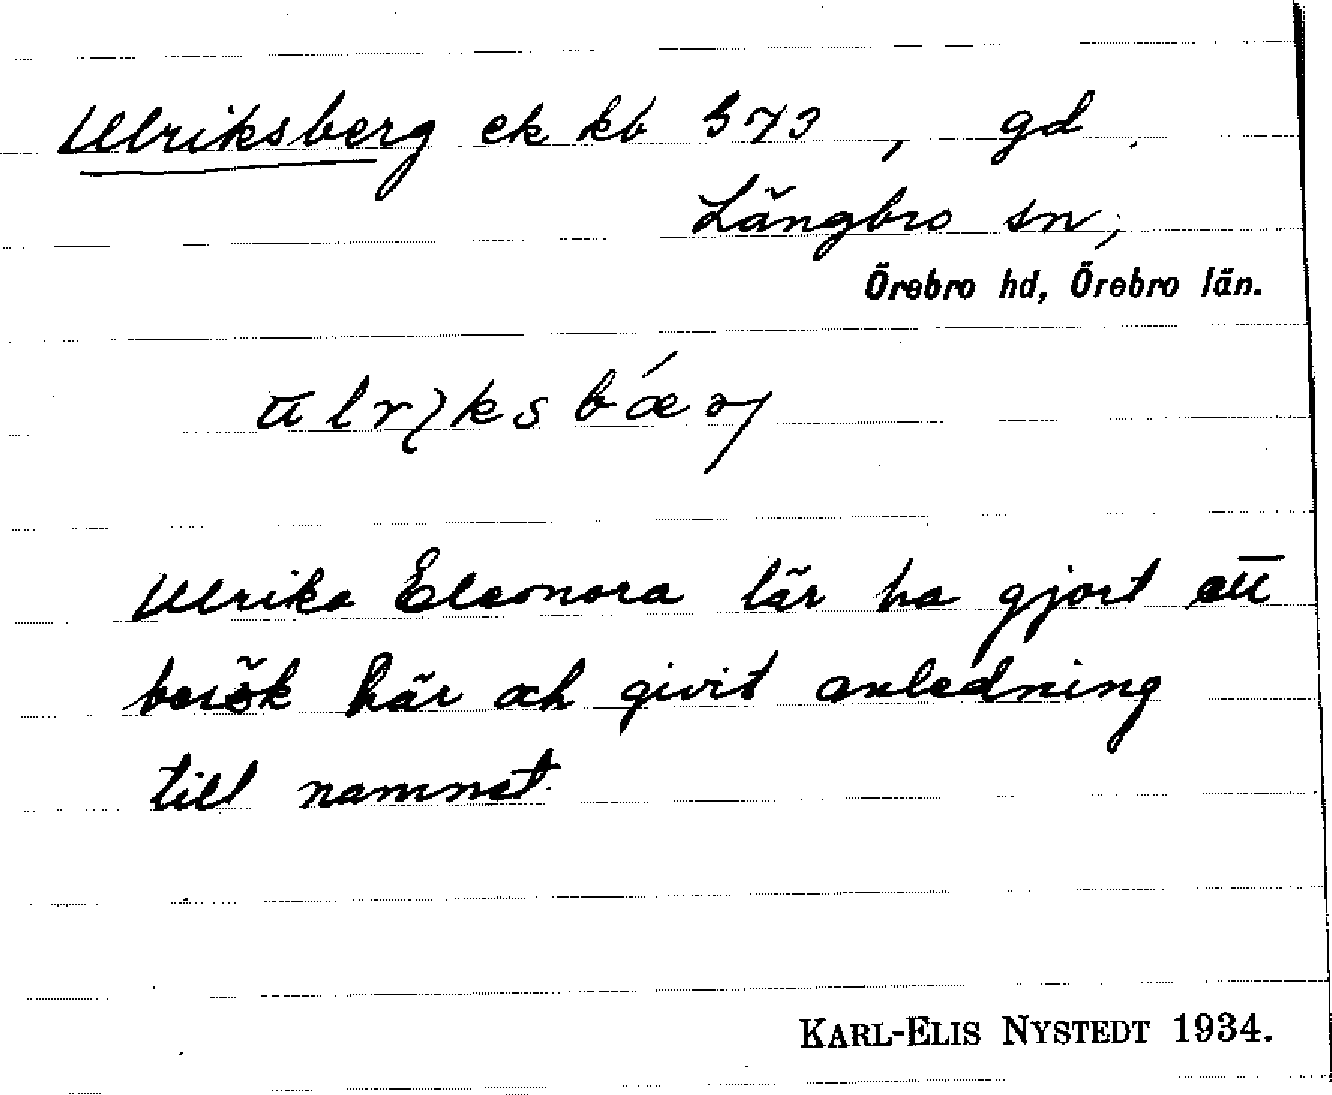 Ulriksberg ek kb 573, gd
Längbro sn,
Örebro hd, Örebro län.
Ulrika Eleonora lär ha gjort ett
besök här och givit anledning
till namnet.
KARL-ELIS NYSTEDT 1934.